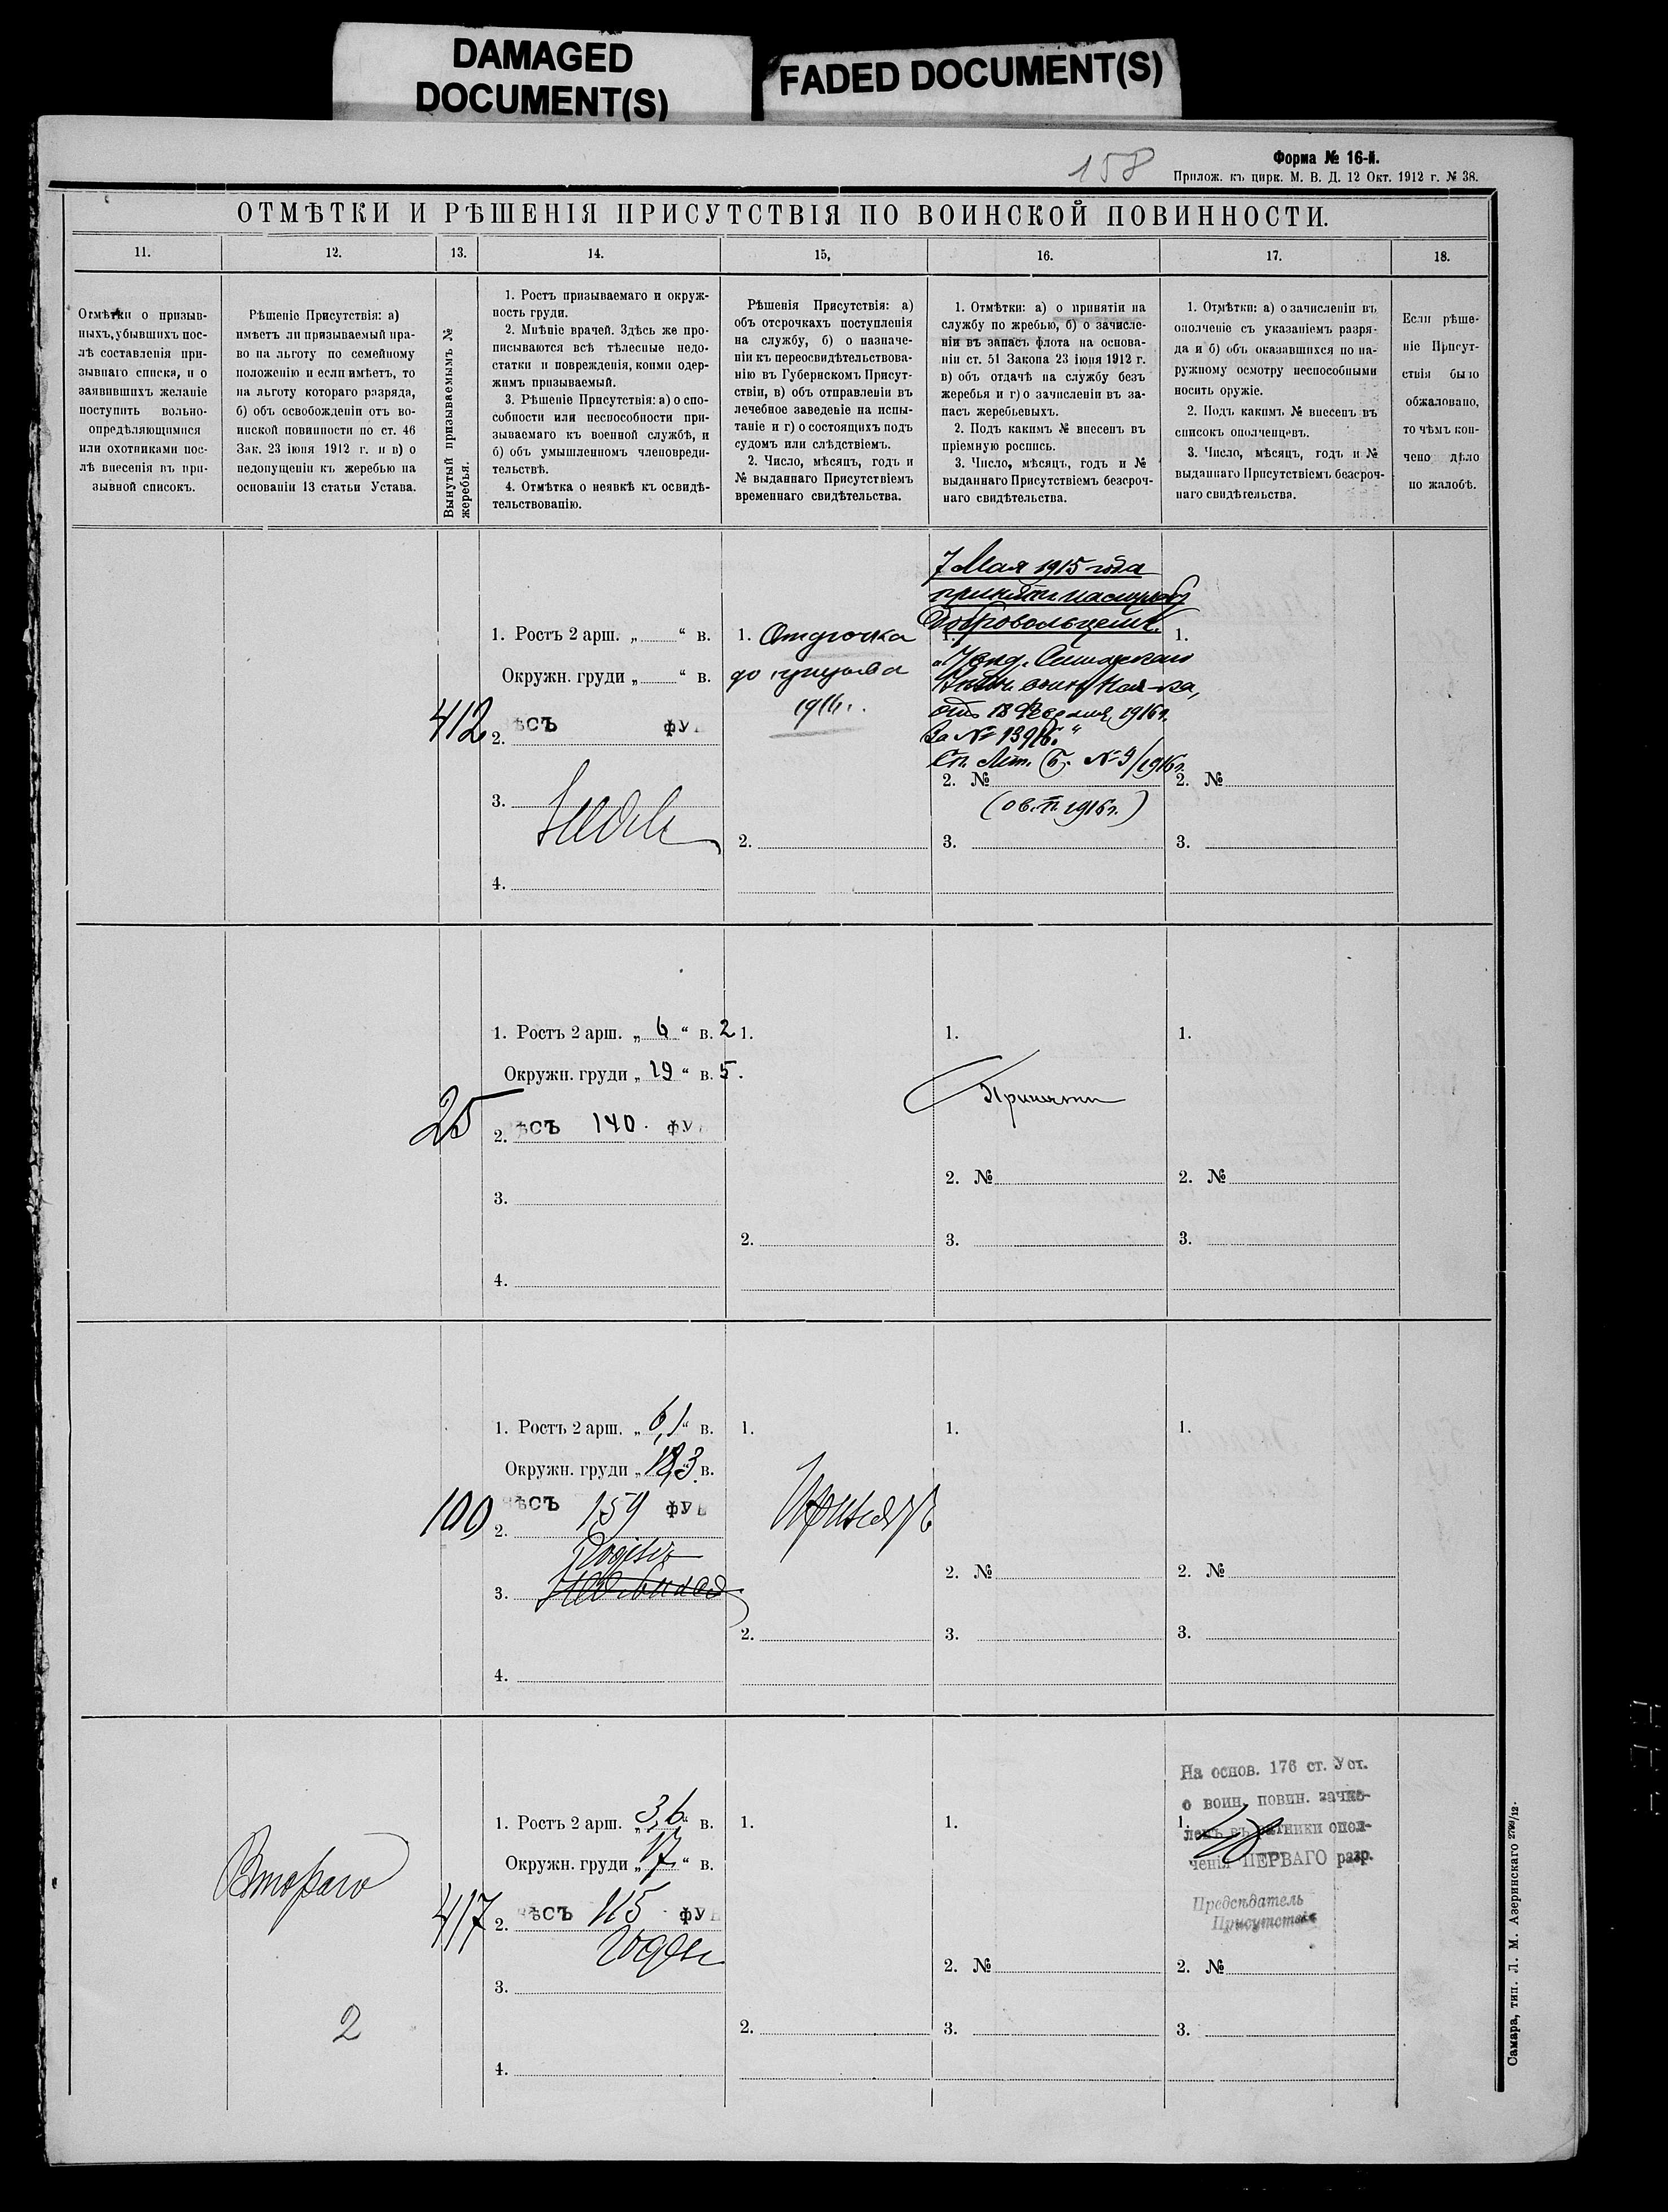 DAMAGED
DOCUMENT(S)
FADED DOCUMENT(S)
158
Форма № 16-й.
Прилож. къ цирк. М. В. Д. 12 Окт. 1912 г. № 38.
ОТМѢТКИ И РѢШЕНІЯ ПРИСУТСТВІЯ ПО ВОИНСКОЙ ПОВИННОСТИ.
11.
12.
13.
14.
15,
16.
17.
18.
Отмѣтки о призыв-
ныхъ, убывшихъ пос-
лѣ составленія при-
зывнаго списка, и о
заявившихъ желаніе
поступить вольно-
опредѣляющимися
или охотниками пос-
лѣ внесенія въ при-
зывной списокъ.
Рѣшеніе Присутствія: а)
имѣетъ ли призываемый пра-
во на льготу по семейному
положенію и если имѣетъ, то
на льготу котораго разряда,
б) объ освобожденіи отъ во-
инской повинности по ст. 46
Зак. 23 іюня 1912 г. и в) о
недопущеніи къ жеребью на
основаніи 13 статьи Устава.
Вынутый призываемымъ №
жеребья.
1. Ростъ призываемаго и окруж-
ность груди.
2. Мнѣніе врачей. Здѣсь же про-
писываются всѣ тѣлесные недо-
статки и поврежденія, коими одер-
жимъ призываемый.
3. Рѣшеніе Присутствія: а) о спо-
собности или неспособности при-
зываемаго къ военной службѣ, и
б) объ умышленномъ членовреди-
тельствѣ.
4. Отмѣтка о неявкѣ къ освидѣ-
тельствованію.
Рѣшенія Присутствія: а)
объ отсрочкахъ поступленія
на службу, б) о назначе-
ніи къ переосвидѣтельствова-
нію въ Губернскомъ Присут-
ствіи, в) объ отправленіи въ
лечебное заведеніе на испы-
таніе и г) о состоящихъ подъ
судомъ или слѣдствіемъ.
2. Число, мѣсяцъ, годъ и
№ выданнаго Присутствіемъ
временнаго свидѣтельства.
1. Отмѣтки: а) о принятіи на
службу по жребью, б) о зачисле-
ніи въ запасъ флота на основа-
ніи ст. 51 Закона 23 іюня 1912 г.
в) объ отдачѣ на службу безъ
жеребья и г) о зачисленіи въ за-
пасъ жеребьевыхъ.
2. Подъ какимъ № внесенъ въ
пріемную роспись.
3. Число, мѣсяцъ, годъ и №
выданнаго Присутствіемъ безсроч-
наго свидѣтельства.
1. Отмѣтки: а) о зачисленіи въ
ополченіе съ указаніемъ разря-
да и б) объ оказавшихся по на-
ружному осмотру неспособными
носить оружіе.
2. Подъ какимъ № внесенъ въ
списокъ ополченцевъ.
3. Число, мѣсяцъ, годъ и №
выданнаго Присутствіемъ безсроч-
наго свидѣтельства.
Если рѣше-
ніе Присут-
ствія было
обжаловано,
то чѣмъ кон-
чено дѣло
по жалобѣ.
412
1. Ростъ 2 арш. „ “ в.
Окружн. груди „ “ в.
ѣсъ фу
2.
3.
4.
1. Отсрочка
до призыва
1916 г.
2.
7 Мая 1915 года
принятъ на службу
Добровольцемъ.
1.
отъ 18 Февраля 1916 г.
За № 13916."
Лит. Б. № 9/1916 г.
2. №
1916 г.)
3.
1.
2. №
3.
25
1. Ростъ 2 арш. „ 6 “ в. 2
Окружн. груди „ 19 “ в. 5.
ѣсъ 140. фу
2.
3.
4.
1.
2.
1.
Принятъ
2. №
3.
1.
2. №
3.
100
1. Ростъ 2 арш. „ 6,1 “ в.
Окружн. груди „ 18,3 “ в.
ѣсъ 159 фу
2.
Годенъ
3.
4.
1.
Принятъ
2.
1.
2. №
3.
1.
2. №
3.
Втораго
2
417
1. Ростъ 2 арш. „ 3,6 “ в.
Окружн. груди „ 17 “ в.
ѣсъ 115 фу
2.
Годенъ
3.
4.
1.
2.
1.
2. №
3.
На основ. 176 ст. Уст.
о воин. повин. зачис-
1.
ленъ въ ратники опол-
ченія ПЕРВАГО разр.
Предсѣдатель
Присутствія
2. №
3.
Самара, тип. Л. М. Азеринскаго 2799/12.